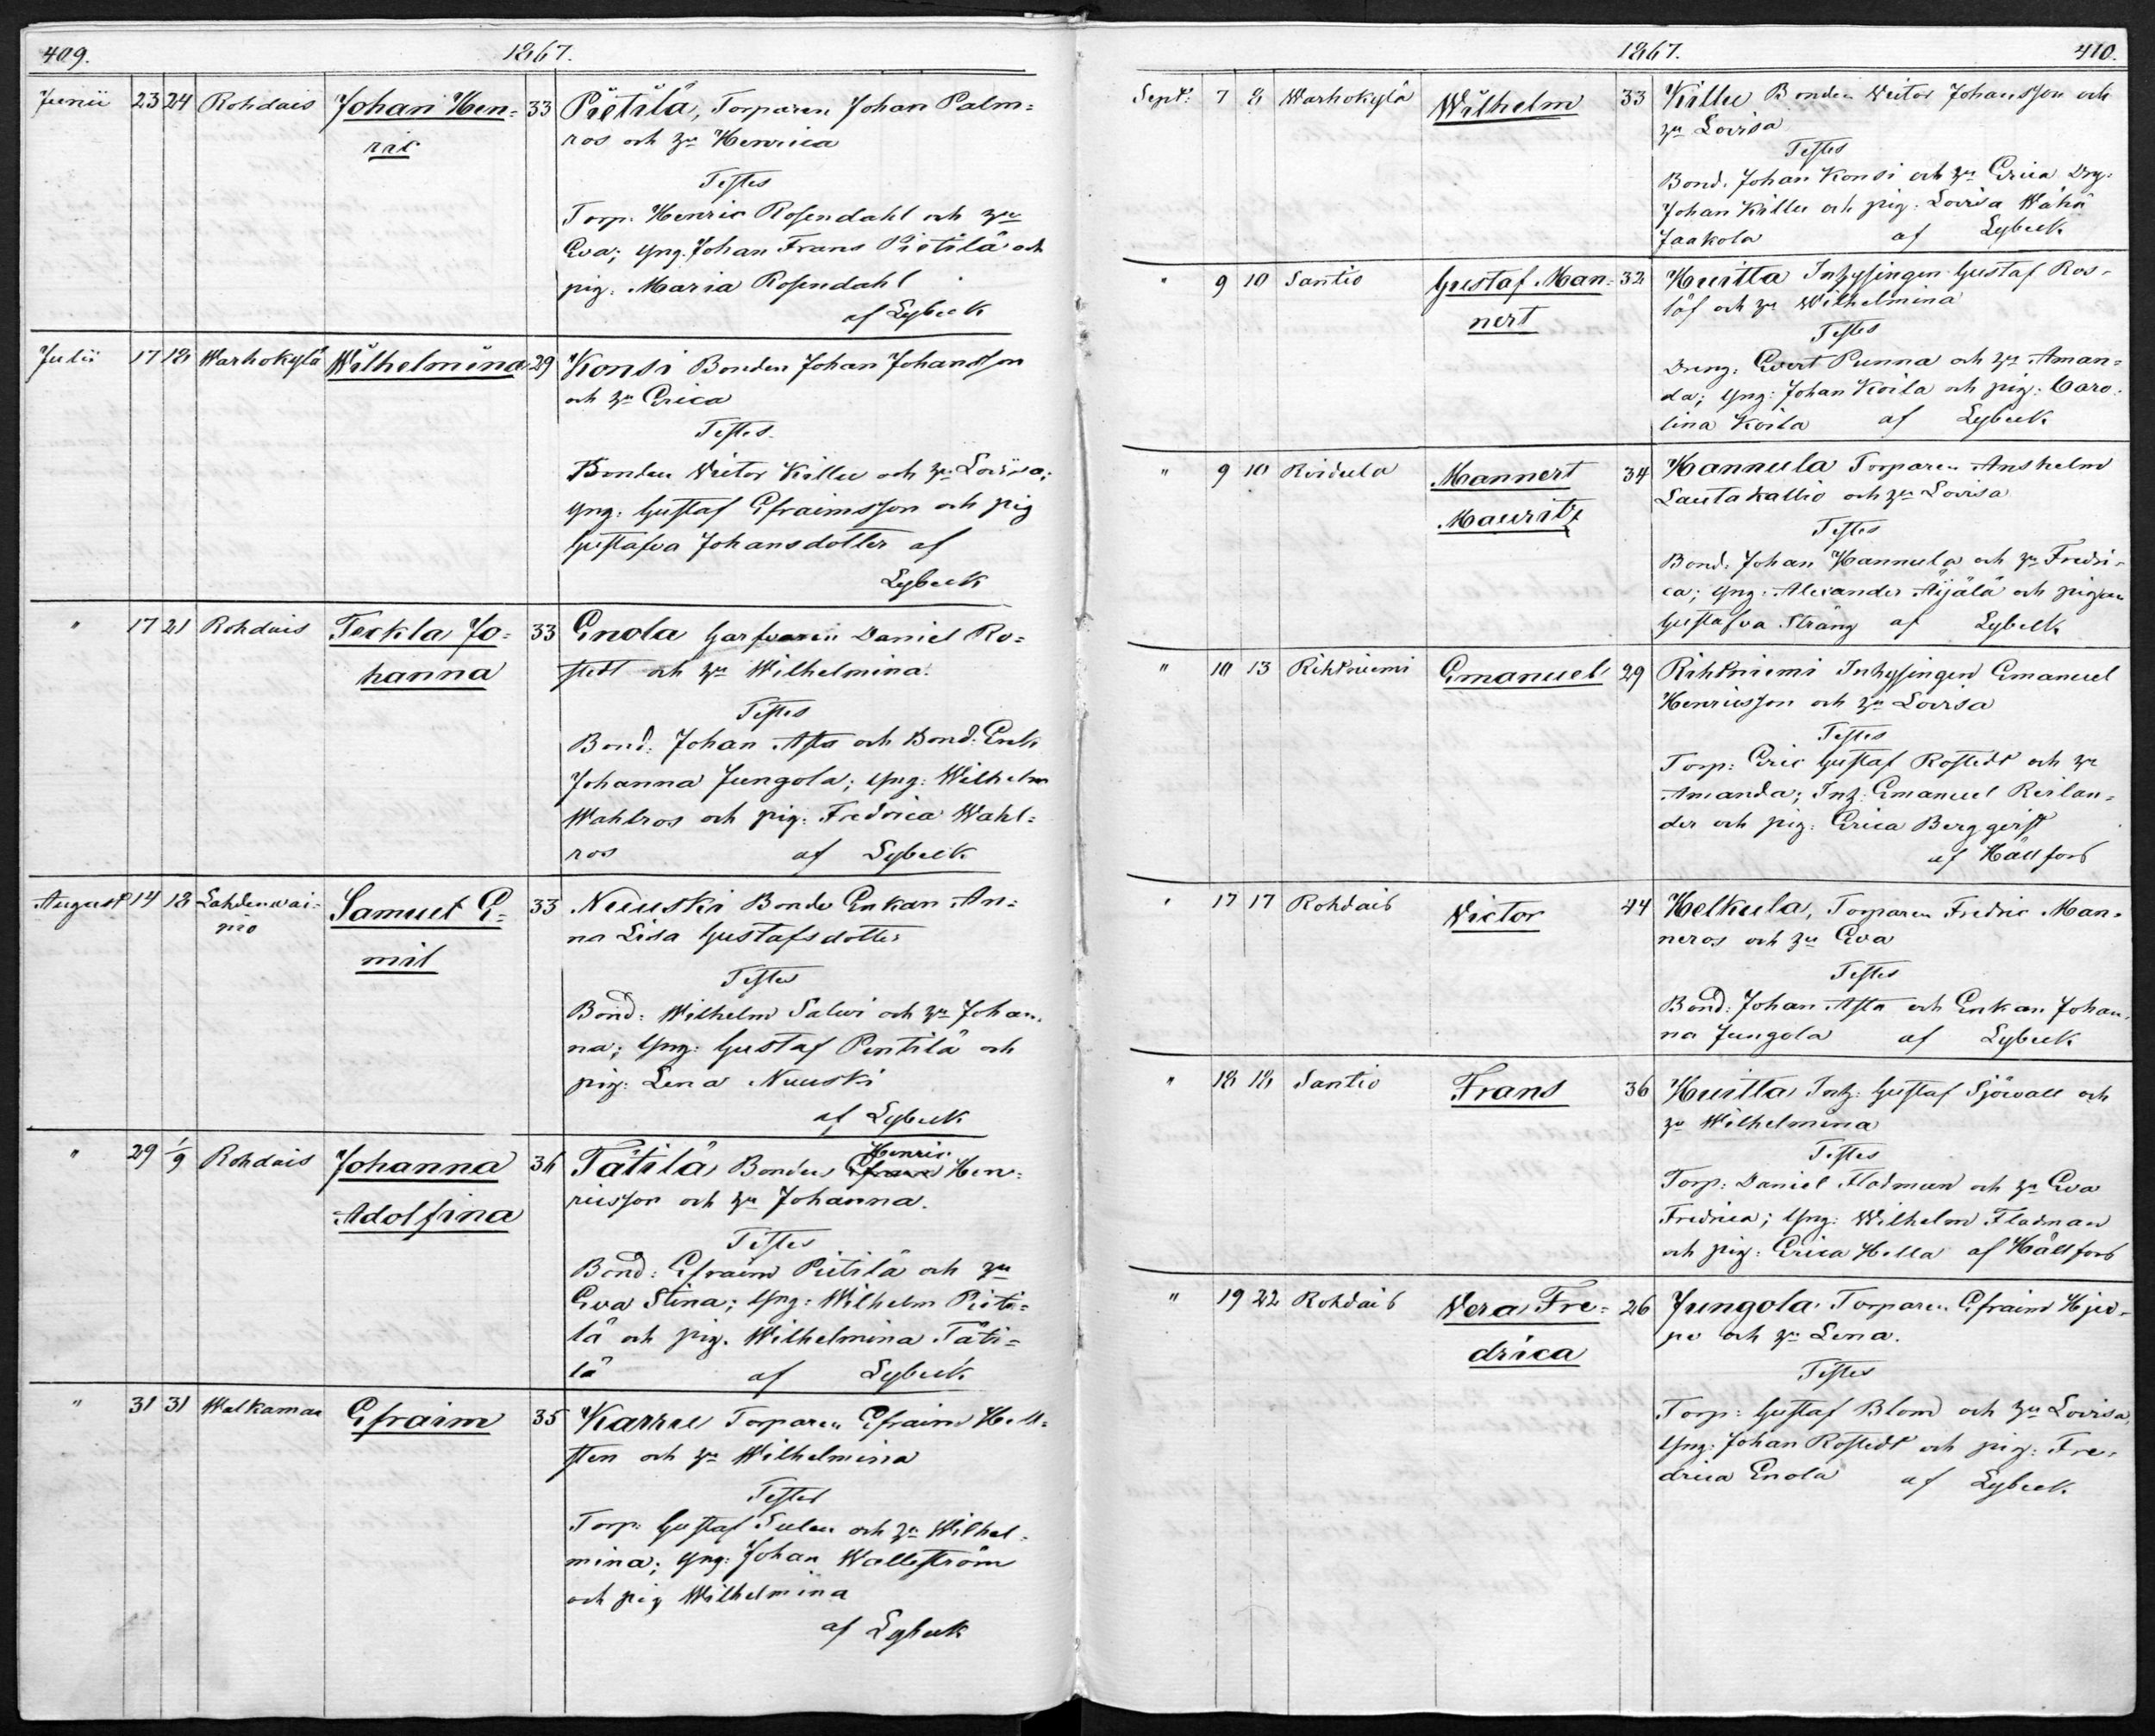 409.
1867.
Junii 23 24 Rohdais Johan Hen= 33 Pietilä, Torparen Johan Palm=
ric ros och hu Henrica
Testes
Torp. Henric Rosendahl och hu
Eva; yng. Johan Frans Pietilä och
pig. Maria Rosendahl
af Lybeck
Julii 17 18 Warhokylä Wilhelmina 29 Konsi Bonden Johan Johansson
och hu Erica
Testes.
Bonden Victor Killu och hu Lovisa;
yng: Gustaf Efraimsson och pig
Gustafva Johansdotter af
Lybeck
" 17 21 Rohdais Teckla Jo= 33 Enola Garfvaren Daniel Ro=
hanna stedt och hu Wilhelmina.
Testes
Bond: Johan Asta och Bond: Enk
Johanna Jungola; yng: Wilhelm
Wahlros och pig: Fredrica Wahl=
ros af Lybeck
August 14 18 Lahdenwai= Samuel E= 33 Nuuski Bonde Enkan An=
pio mil na Lisa Gustafsdotter
Testes
Bond: Wilhelm Salwi och hu Johan=
na; yng: Gustaf Pentilä och
pig: Lena Nuuski
af Lybeck
" 29 1/9 Rohdais Johanna 36 Tätilä Bonden Efraim Henric Hen=
Adolfina ricsson och hu Johanna.
Testes
Bond: Efraim Pietilä och hu
Eva Stina; yng: Wilhelm Pieti=
lä och pig. Wilhelmina Täti=
lä af Lybeck
" 31 31 Walkamaa Efraim 35 Karru Torparen Efraim Hell=
sten och hu Wilhelmina
Testes
Torp: Gustaf Sulen och hu Wilhel=
mina; yng: Johan Wallström
och pig Wilhelmina
af Lybeck
1867.
410.
Sept: 7 8 Warhokylä Wilhelm 33 Killu Bonden Victor Johansson och
hu Lovisa
Testes
Bond. Johan Konsi och hu Erica Drg:
Johan Killu och pig: Lovisa Wähä
Jaakola af Lybeck
" 9 10 Santio Gustaf Man= 32 Huitta Inhysingen Gustaf Ros=
nert löf och hu Wilhelmina
Testes
Dreng: Evert Punna och hu Aman=
da; yng: Johan Koila och pig: Caro=
lina Koila af Lybeck
" 9 10 Roidula Mannert 34 Hannula Torparen Anshelm
Mauritz Lautakallio och hu Lovisa
Testes
Bond. Johan Hannula och hu Fredri=
ca; yng: Alexander Äijälä och pigan
Gustafva Sträng af Lybeck
" 10 13 Rihtniemi Emanuel 29 Rihtniemi Inhysingen Emanuel
Henricsson och hu Lovisa
Testes
Torp: Eric Gustaf Rostedt och hu
Amanda; Inh: Emanuel Reilan=
der och pig: Erica Bergqvist
af Hällfors
" 17 17 Rohdais Victor 44 Helkula, Torparen Fredric Man=
neros och hu Eva
Testes
Bond: Johan Asta och Enkan Johan=
na Jungola af Lybeck
" 18 18 Santio Frans 36 Huitta Inh: Gustaf Sjövall och
hu Wilhelmina
Testes
Torp: Daniel Fladman och hu Eva
Fredrica; yng: Wilhelm Fladman
och pig: Erica Hella af Hällfors
" 19 22 Rohdais Vera Fre= 26 Jungola Torparen Efraim Hjol=
drica pe och hu Lena.
Testes
Torp: Gustaf Blom och hu Lovisa,
yng: Johan Rostedt och pig: Fre=
drica Enola af Lybeck.